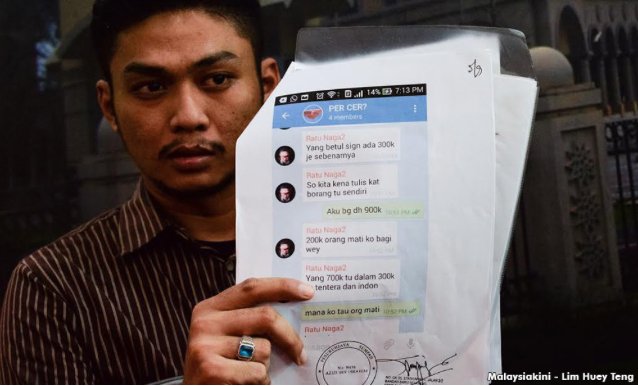 5/9
14% 7:13 PM
PER CER?
4 members
Ratu Naga2
Yang betul sign ada 300k
je sebenarnya
Ratu Naga2
So kita kena tulis kat
borang tu sendiri
Aku bg dh 900k
Ratu Naga2
200k orang mati ko bagi
wey
Ratu Naga2
Yang 700k tu dalam 300k
tentera dan indon
mana ko tau org mati
Ratu Naga2
Malaysiakini - Lim Huey Teng